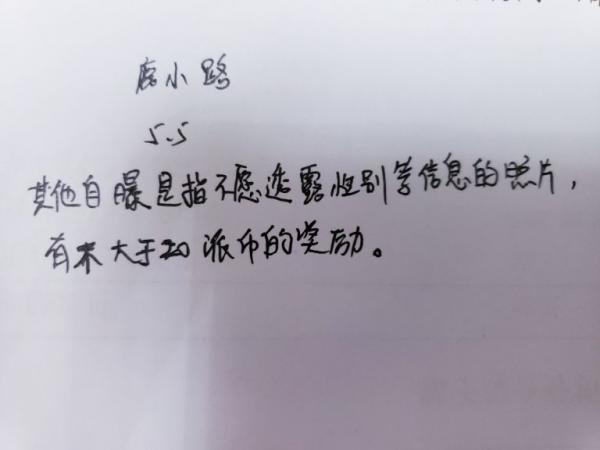 小路
5.5
其他自曝是指不愿透露性别等信息的照片，
有未大于20派币的奖励。